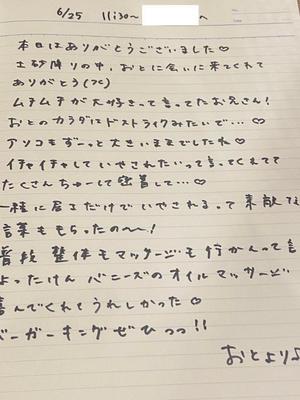 6/25 11:30〜 へ
本日はありがとうございました♡
土砂降りの中、おとに会いに来てくれて
ありがとう(って)
ムチムチが大好きって言ってたお兄さん!
おとのカラダはドストライクみたいで…♡
アソコもずーっと大きいままでしたね♡
イチャイチャしていやされたいって言ってくれてて
たくさんちゅーして密着して…♡
一緒に居るだけでいやされるって素敵な
言葉ももらったの〜!
普段 整体もマッサージも行かんって言
よったけん バニーズのオイルマッサージ
喜んでくれてうれしかった♡
バーガーキングぜひっっ!!
おとより♪